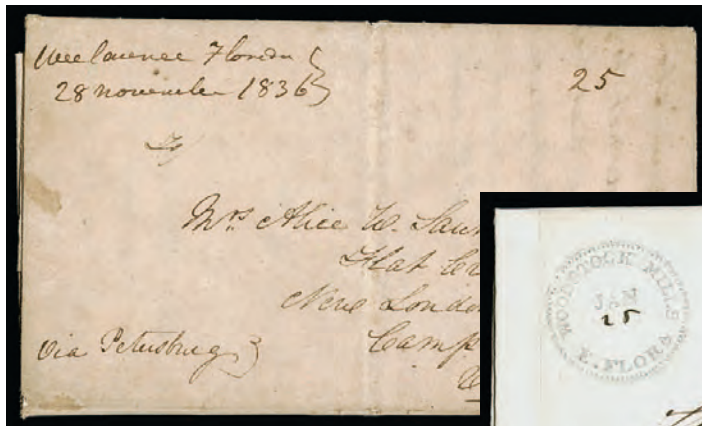 Florida
28 november 1836
25
To
Mrs Alice W. Saun
Flat
New London
Camp
via Petersburg
WOODSTOCK MILLS
JAN
25
E. FLORA